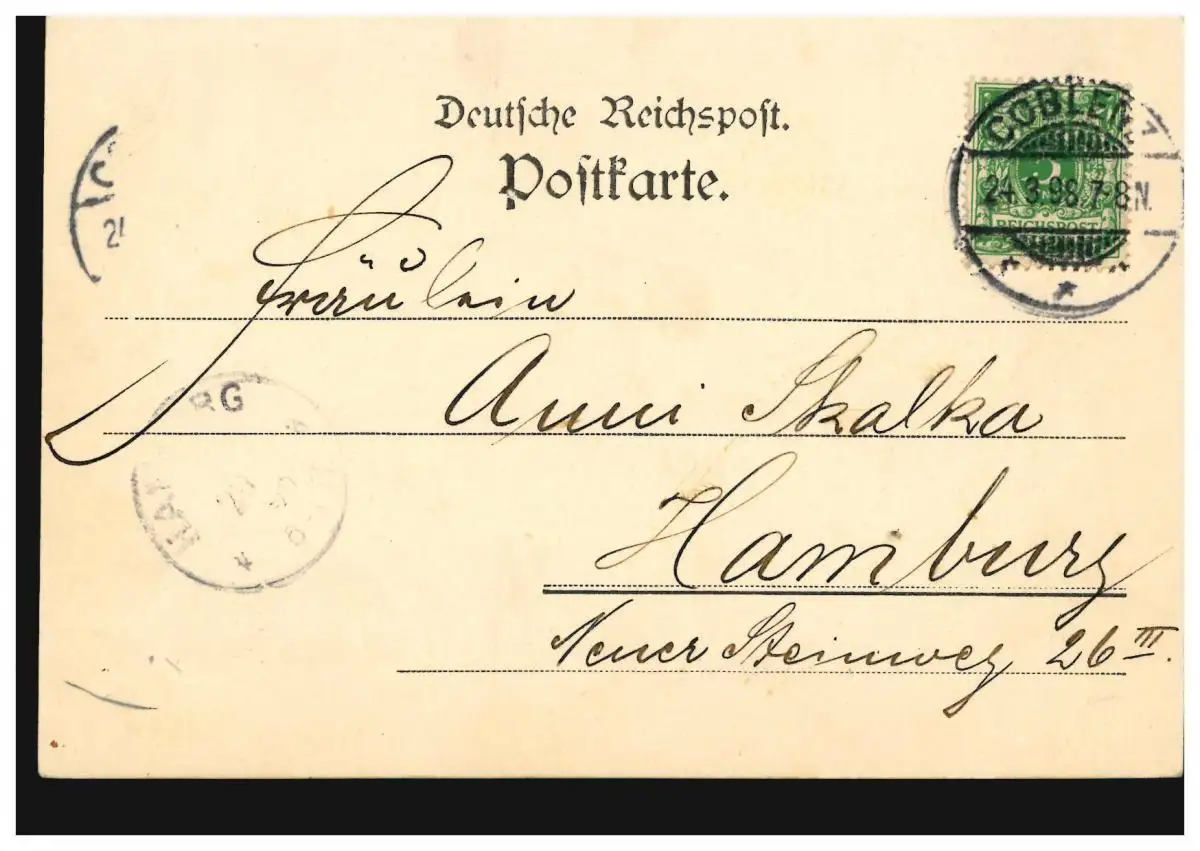 Deutsche Reichspost.
Postkarte.
COBLENZ
24.3.98.7-8N.
REICHSPOST
Fräulein
Anni Skalka
Hamburg
Neuer Steinweg 26 III.